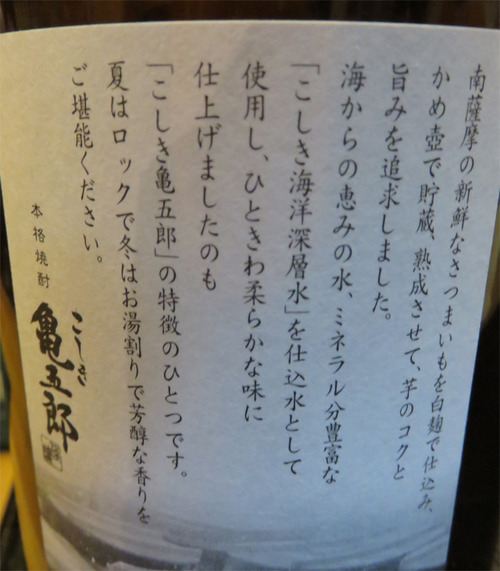 南薩摩の新鮮なさつまいもを白麹で仕込み、
かめ壺で貯蔵、熟成させて、芋のコクと
旨みを追求しました。
海からの恵みの水、ミネラル分豊富な
「こしき海洋深層水」を仕込水として
使用し、ひときわ柔らかな味に
仕上げましたのも
「こしき亀五郎」の特徴のひとつです。
夏はロックで冬はお湯割りで芳醇な香りを
ご堪能ください。
こしき
亀五郎
本格焼酎